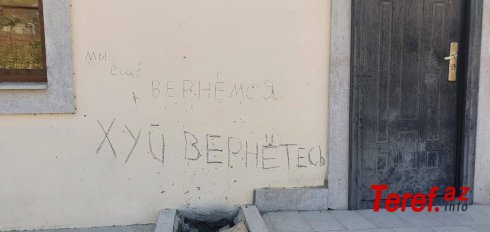 мы
ещё
ВЕРНЁМСЯ
ХУЙ ВЕРНЁТЕСЬ
Teref.az
info